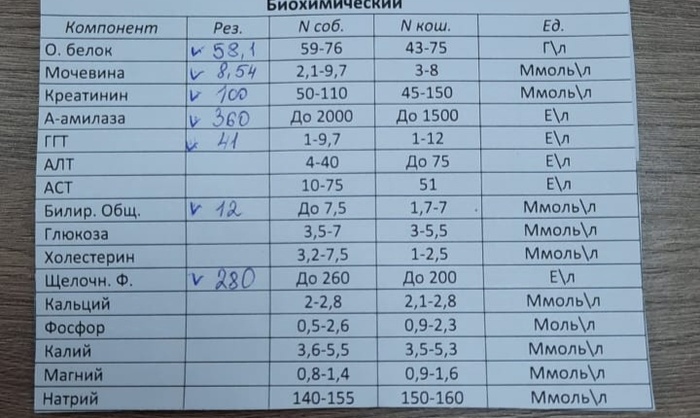 Биохимический
Компонент Рез. N соб. N кош. Ед.
О. белок ✓ 58,1 59-76 43-75 Г\л
Мочевина ✓ 8,54 2,1-9,7 3-8 Ммоль\л
Креатинин ✓ 100 50-110 45-150 Ммоль\л
А-амилаза ✓ 360 До 2000 До 1500 Е\л
ГГТ ✓ 41 1-9,7 1-12 Е\л
АЛТ 4-40 До 75 Е\л
АСТ 10-75 51 Е\л
Билир. Общ. ✓ 12 До 7,5 1,7-7 Ммоль\л
Глюкоза 3,5-7 3-5,5 Ммоль\л
Холестерин 3,2-7,5 1-2,5 Ммоль\л
Щелочн. Ф. ✓ 280 До 260 До 200 Е\л
Кальций 2-2,8 2,1-2,8 Ммоль\л
Фосфор 0,5-2,6 0,9-2,3 Моль\л
Калий 3,6-5,5 3,5-5,3 Ммоль\л
Магний 0,8-1,4 0,9-1,6 Ммоль\л
Натрий 140-155 150-160 Ммоль\л